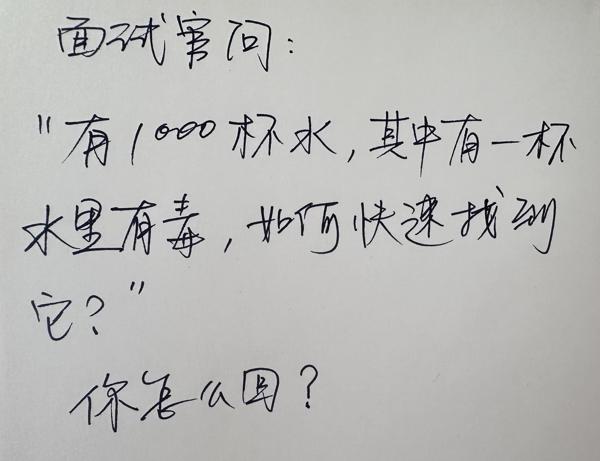 面试官问：
"有1000杯水，其中有一杯
水里有毒，如何快速找到
它？"
你怎么回？